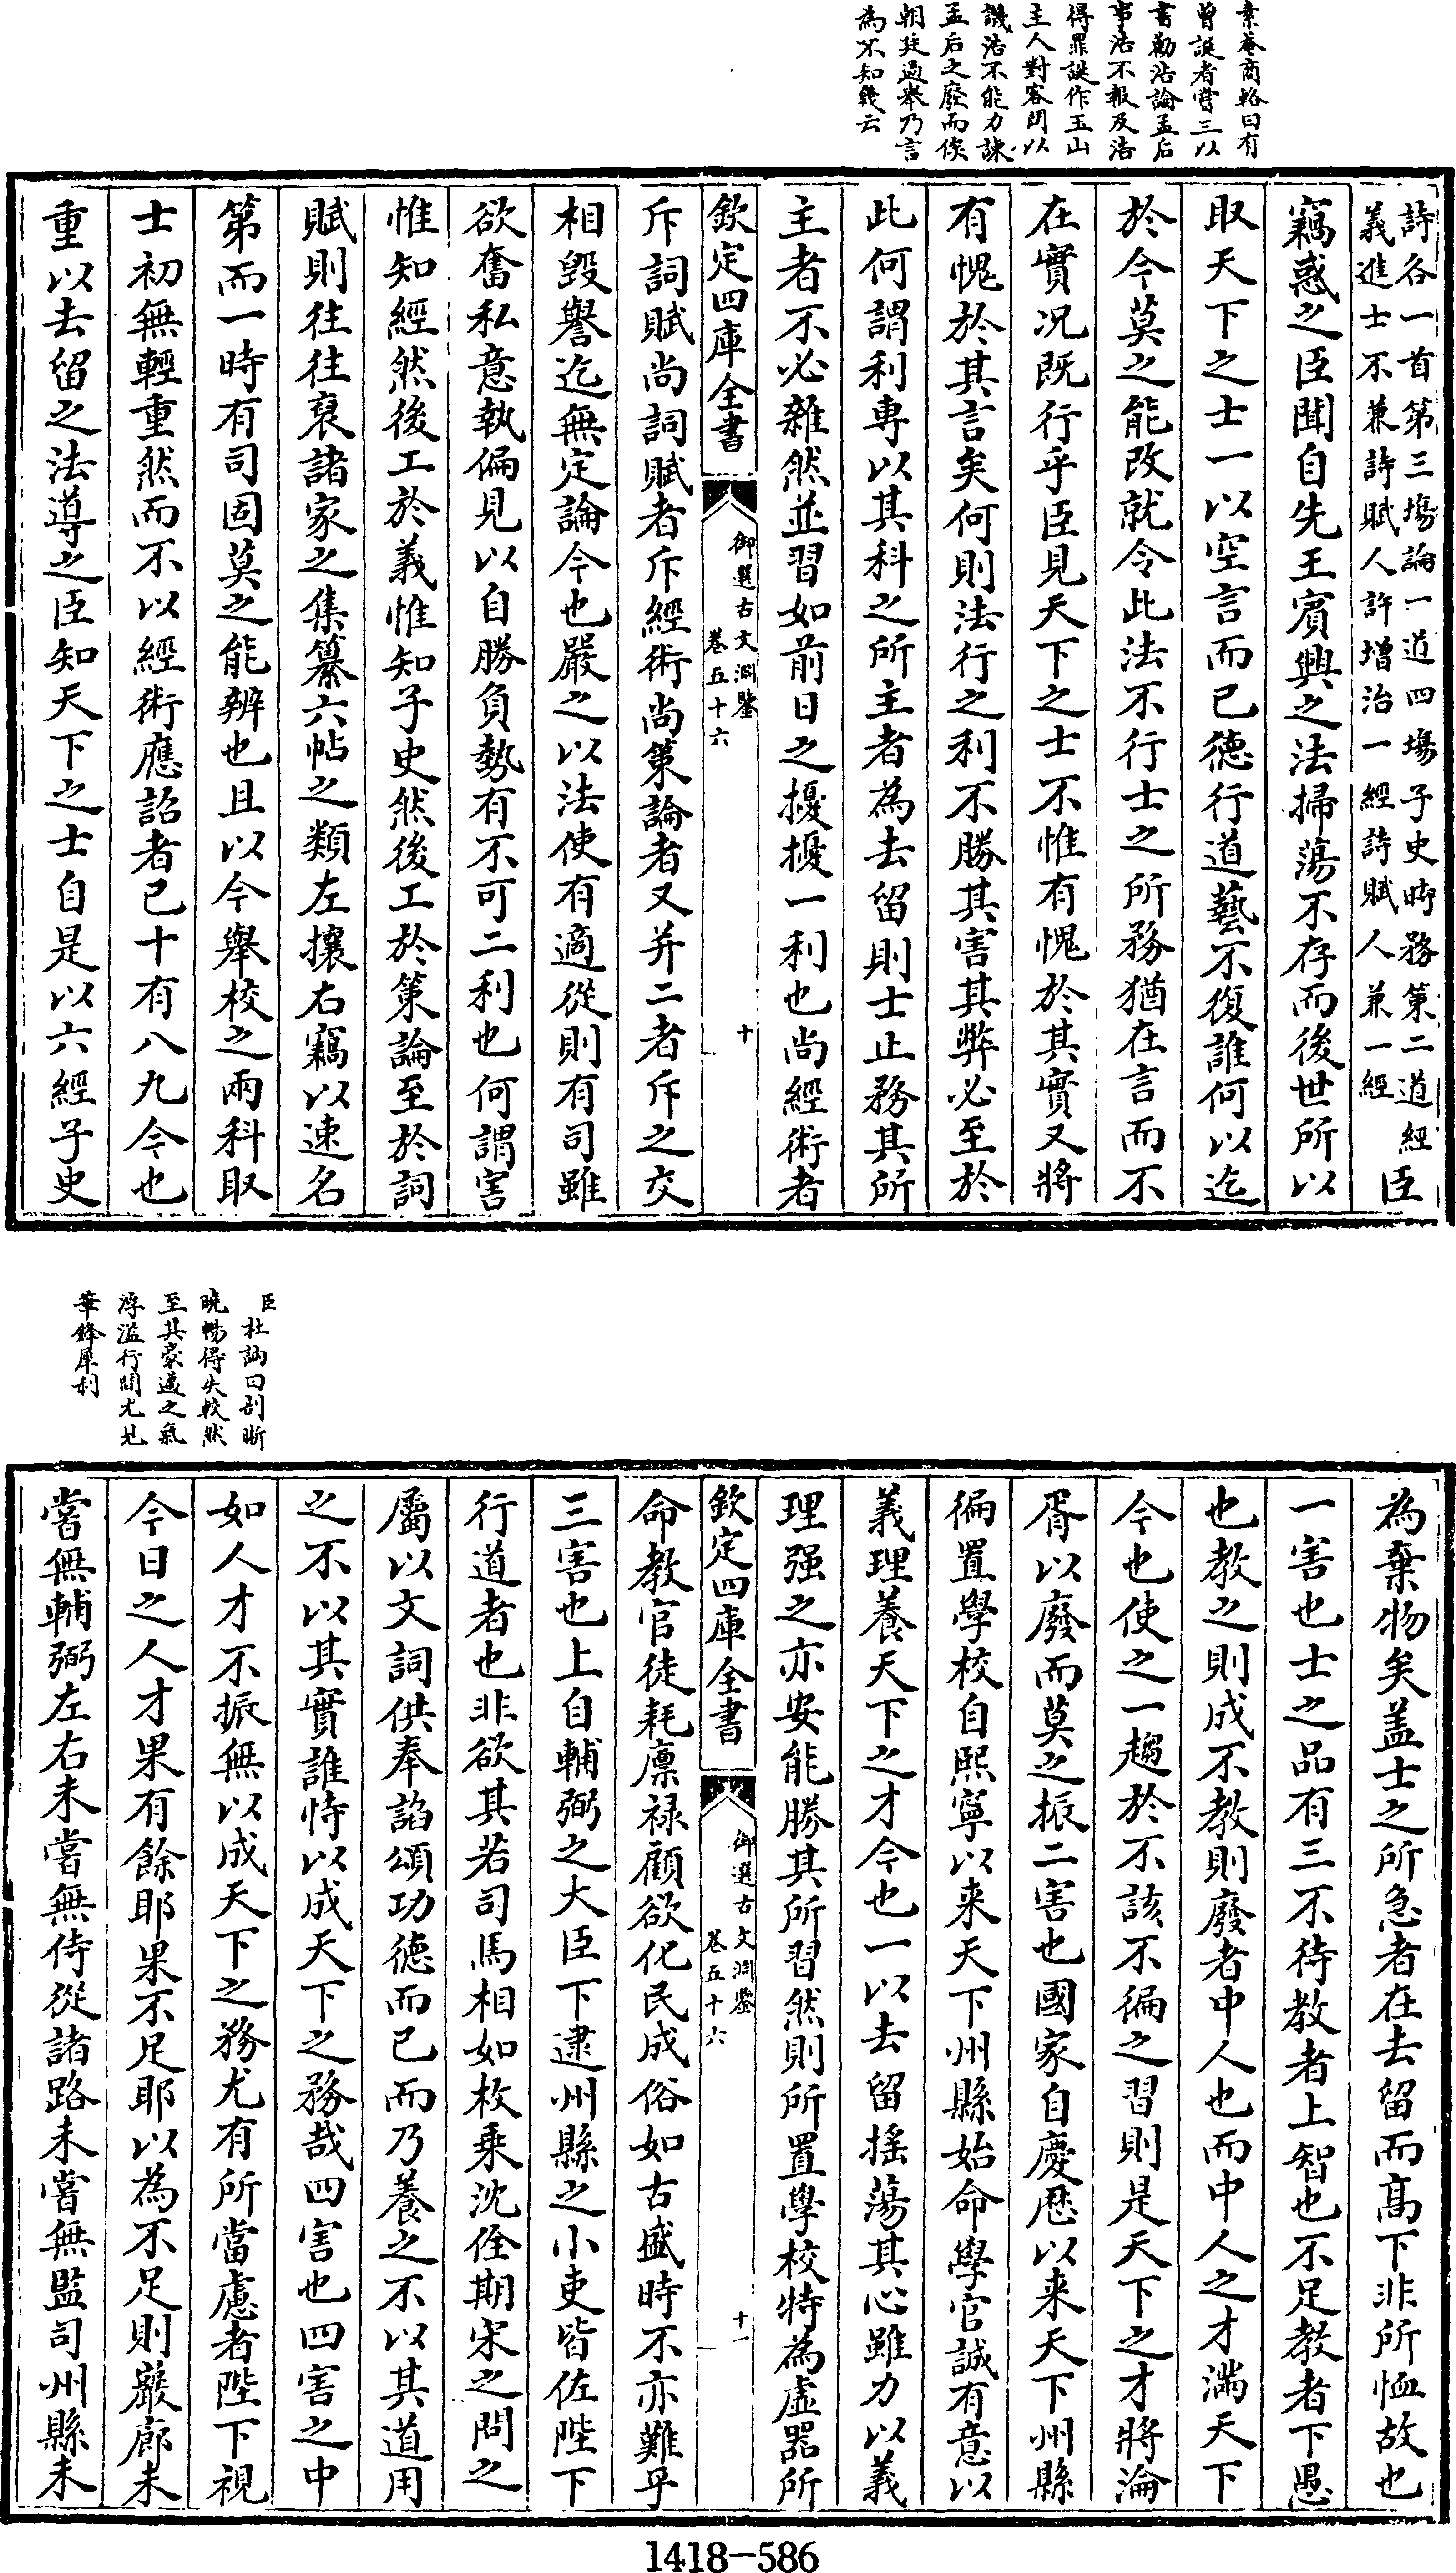 素菴商輅曰有
曾誕者嘗三以
書勸浩論孟后
事浩不報及浩
得罪誕作玉山
主人對客問以
譏浩不能力諫
孟后之廢而俟
朝廷過舉乃言
為不知幾云
詩各一首第三塲論一道四塲子史時務第二道經
義進士不兼詩賦人許增治一經詩賦人兼一經
臣
竊惑之臣聞自先王賓興之法掃蕩不存而後世所以
取天下之士一以空言而已德行道藝不復誰何以迄
於今莫之能改就令此法不行士之所務猶在言而不
在實况既行乎臣見天下之士不惟有愧於其實又將
有愧於其言矣何則法行之利不勝其害其弊必至於
此何謂利專以其科之所主者為去留則士止務其所
主者不必雜然並習如前日之擾擾一利也尚經術者
欽定四庫全書
御選古文淵鑒
卷五十六
十
斥詞賦尚詞賦者斥經術尚策論者又并二者斥之交
相毁譽迄無定論今也嚴之以法使有適從則有司雖
欲奮私意執偏見以自勝負勢有不可二利也何謂害
惟知經然後工於義惟知子史然後工於策論至於詞
賦則往往裒諸家之集纂六帖之類左攘右竊以速名
第而一時有司固莫之能辨也且以今舉校之兩科取
士初無輕重然而不以經術應詔者已十有八九今也
重以去留之法導之臣知天下之士自是以六經子史
臣杜訥曰剖晰
曉暢得失較然
至其豪邁之氣
浮溢行間尤見
筆鋒犀利
為棄物矣葢士之所急者在去留而髙下非所恤故也
一害也士之品有三不待教者上智也不足教者下愚
也教之則成不教則廢者中人也而中人之才滿天下
今也使之一趨於不該不徧之習則是天下之才將淪
胥以廢而莫之振二害也國家自慶厯以来天下州縣
徧置學校自熙寧以来天下州縣始命學官誠有意以
義理養天下之才今也一以去留揺蕩其心雖力以義
理强之亦安能勝其所習然則所置學校特為虚器所
欽定四庫全書
御選古文淵鑒
卷五十六
十一
命教官徒耗廪禄顧欲化民成俗如古盛時不亦難乎
三害也上自輔弼之大臣下逮州縣之小吏皆佐陛下
行道者也非欲其若司馬相如枚乗沈佺期宋之問之
屬以文詞供奉諂頌功德而已而乃養之不以其道用
之不以其實誰恃以成天下之務哉四害也四害之中
如人才不振無以成天下之務尤有所當慮者陛下視
今日之人才果有餘耶果不足耶以為不足則巖廊未
嘗無輔弼左右未嘗無侍從諸路未嘗無監司州縣未
1418-586